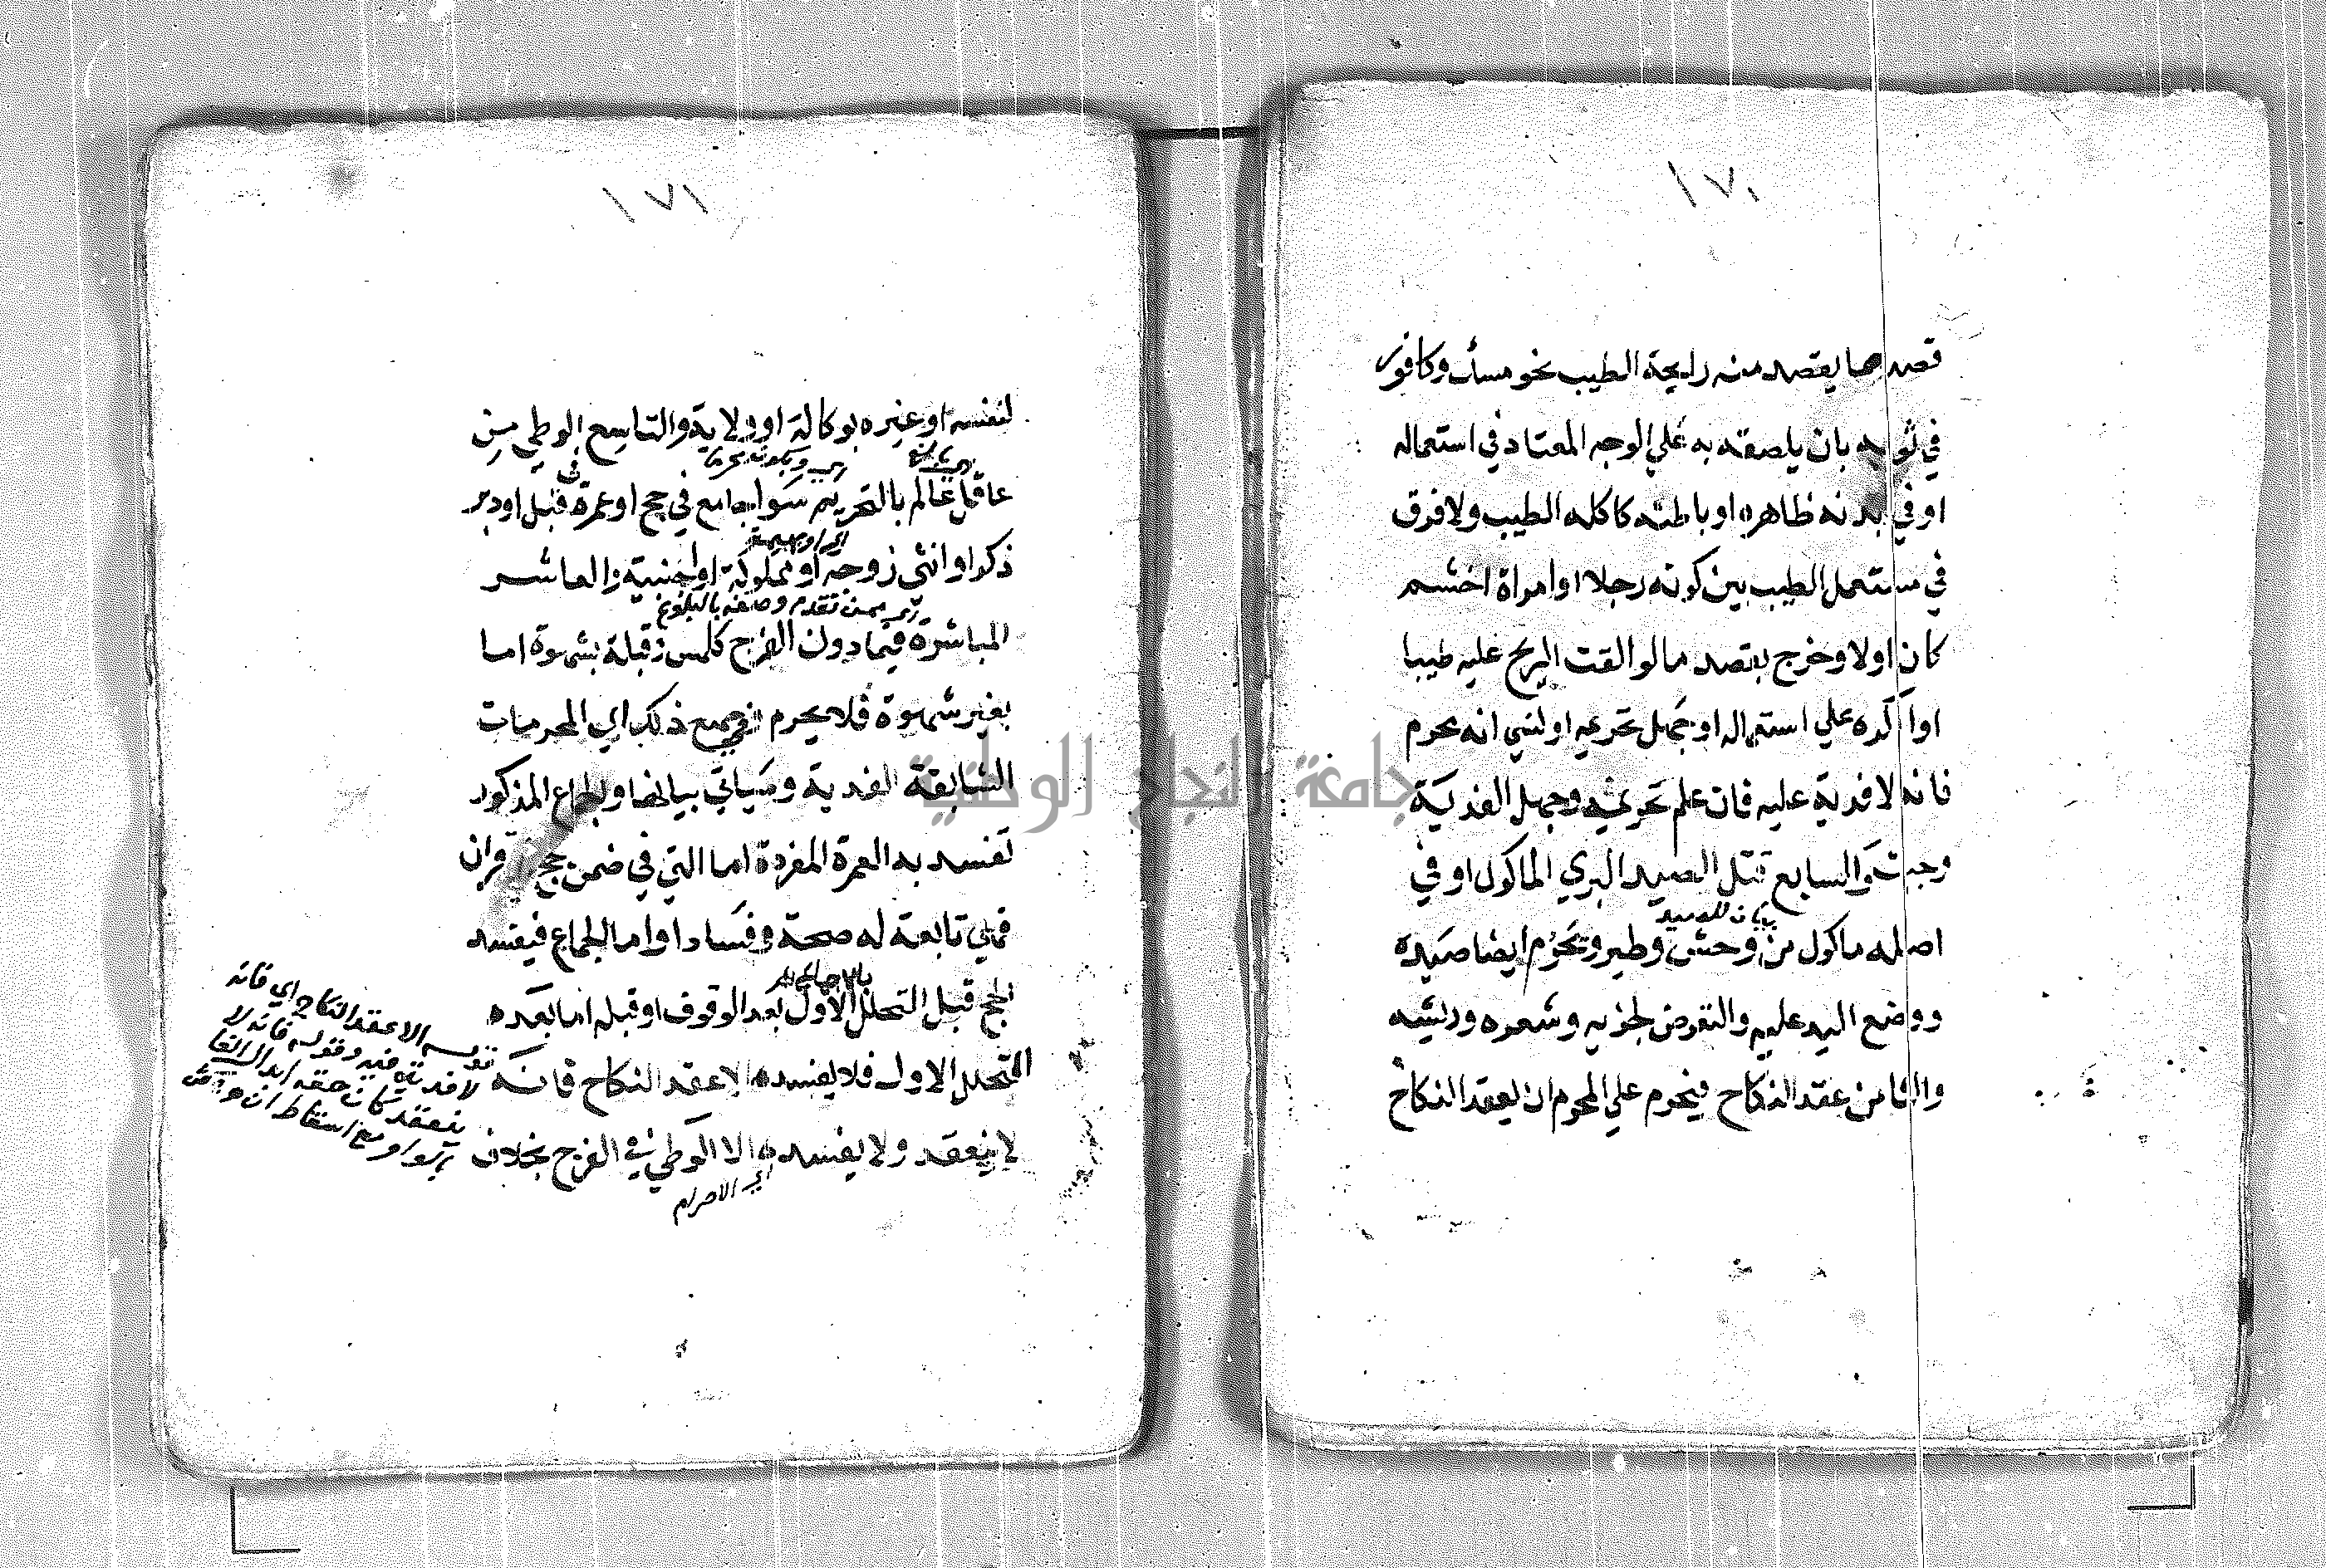 ١٧٠
قصد بما يقصد منه رايحة الطيب نحو مسك وكافور
في ثوبه بان يلصقه به علي الوجه المعتاد في استعماله
او في بدنه ظاهره او باطنه كاكله الطيب ولا فرق
في مستعمل الطيب بين كونه رجلا او امراة اخشم
كان اولا وخرج بقصد ما لو القت الريح عليه طيبا
او اكره علي استعماله او جهل تحريمه او نسي انه محرم
فانه لا فدية عليه فان علم تحريمه وجهل الفدية
وجبت والسابع قتل الصيد البري الماكول او في
بيان للصيد
اصله ماكول من وحش وطير ويحرم ايضا صيده
ووضع اليد عليه والتعرض لجزيه وشعره وريشه
والثامن عقد النكاح فيحرم علي المحرم ان يعقد النكاح
١٧١
لنفسه او غيره بوكالة او ولاية والتاسع الوطي من
اي بالغ
عاقل عالم بالتحريم سوا جامع في حج او عمرة في قبل او دبر
اي او بهيمة
ذكر او انثي زوجة او مملوكة او اجنبية والعاشر
اي ممن تقدم وصفه بالبلوغ
المباشرة فيما دون الفرج كلمس وقبلة بشهوة اما
بغير شهوة فلا يحرم وفي جميع ذلك اي المحرمات
السابقة الفدية وسياتي بيانها والجماع المذكور
تفسد به العمرة المفردة اما التي في ضمن حج قران
فهي تابعة له صحة وفسادا واما الجماع فيفسد
الحج قبل التحلل الاول بعد الوقوف او قبله اما بعده
التحلل الاول فلا يفسده الا عقد النكاح فانه
لا ينعقد ولا يفسده الا الوطي في الفرج بخلاف
اي الاحرام
قوله الا عقد النكاح اي فانه
لا فدية فيه وقوله فانه لا
ينعقد كان حقه ابدال الفا
جامعة النجاح الوطنية